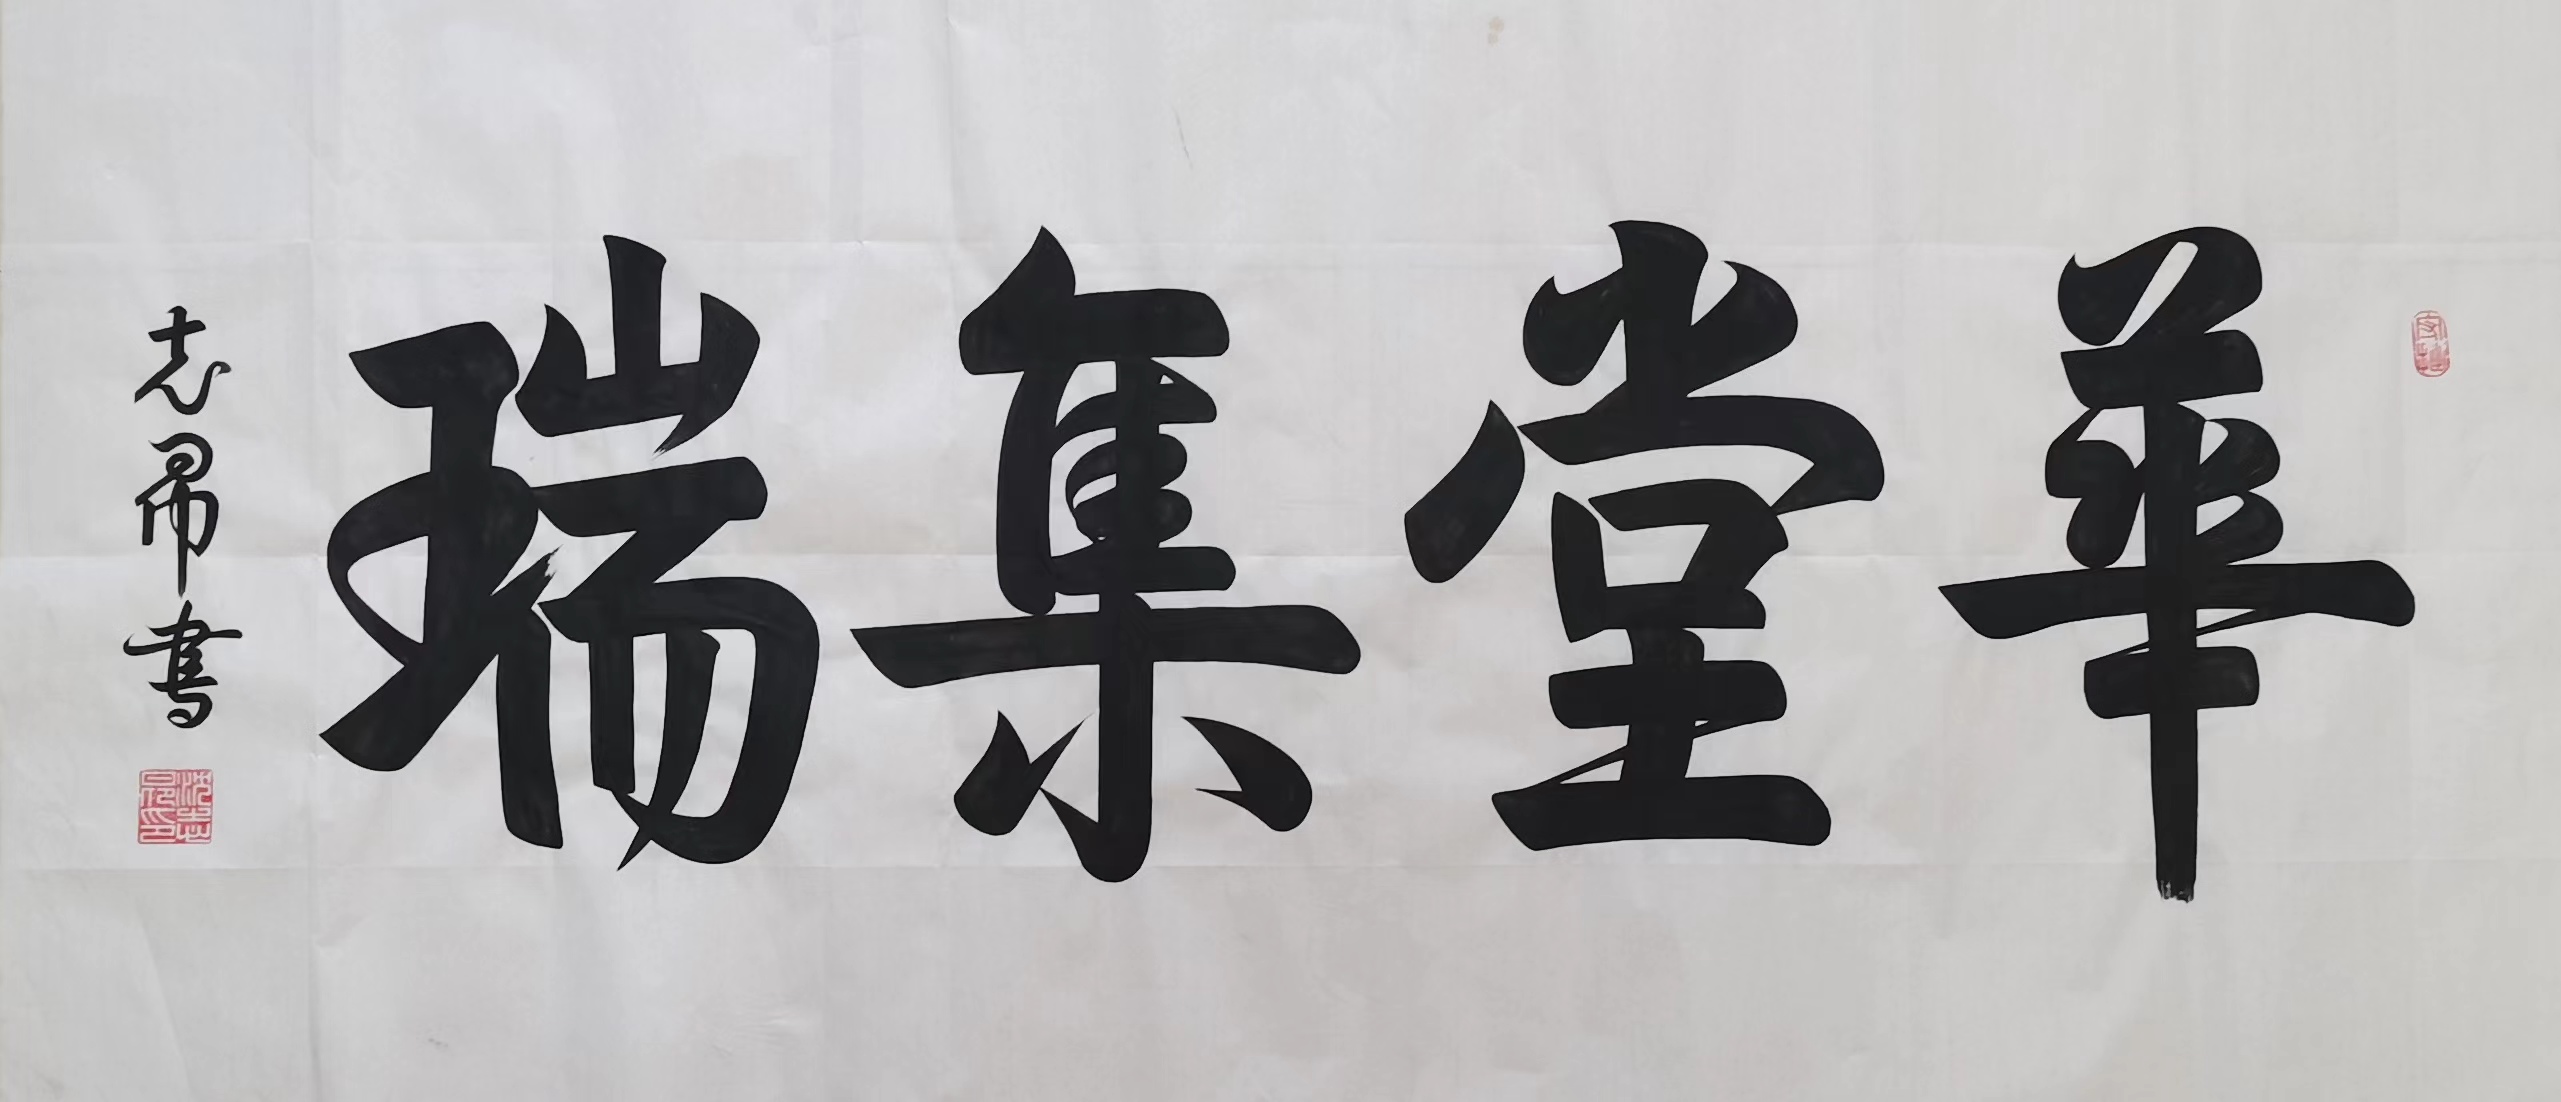 華堂集瑞
志帚書